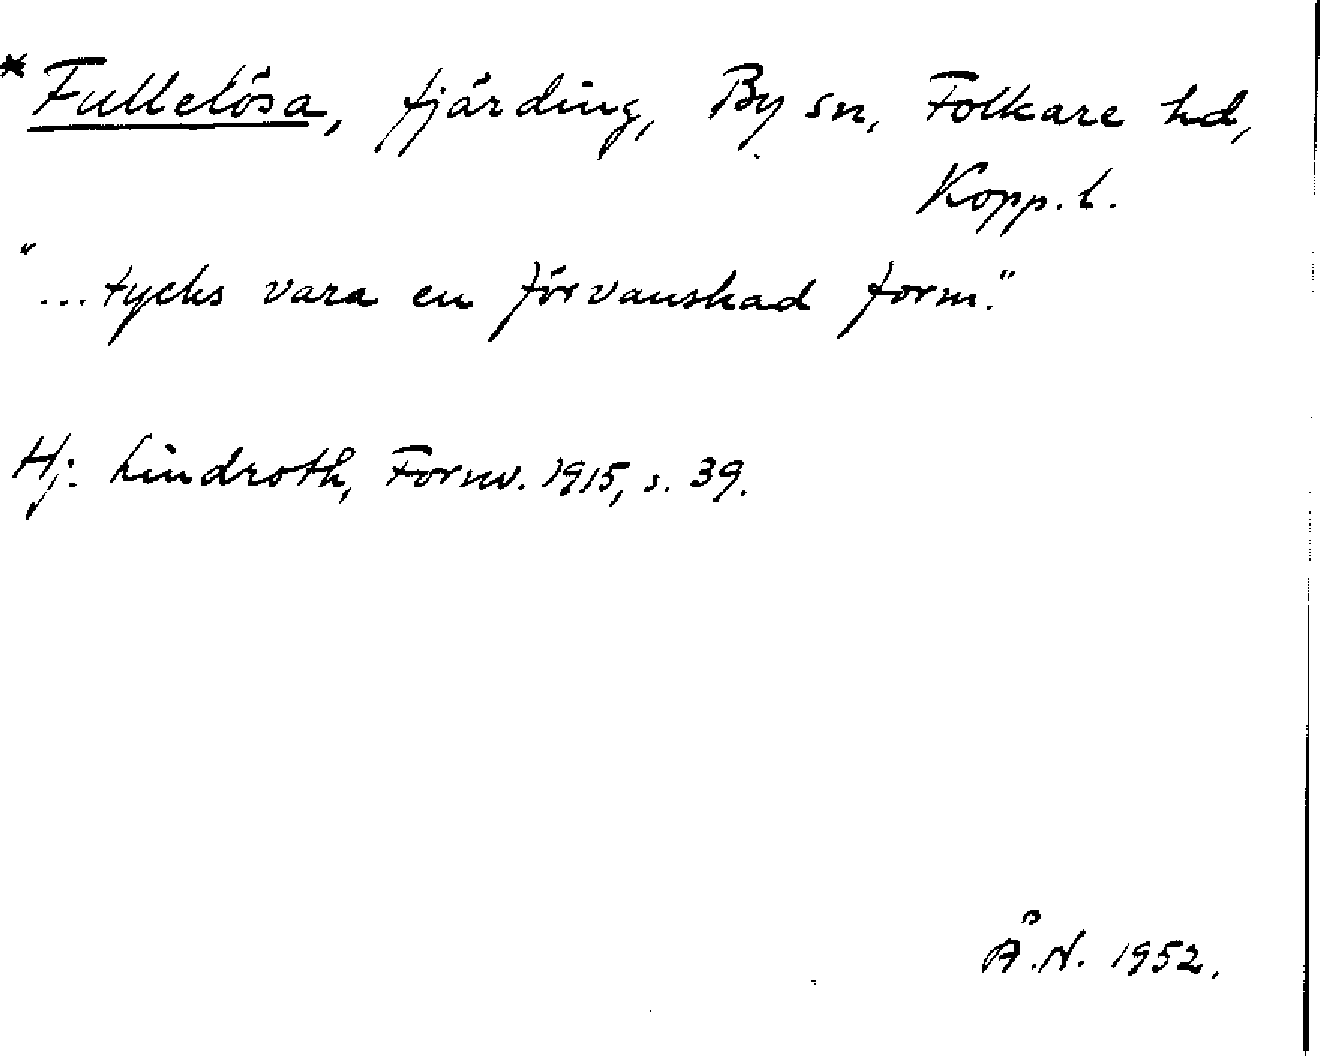 *Fullelösa, fjärding, By sn, Folkare hd,
Kopp. l.
"...tycks vara en förvanskad form."
Hj. Lindroth, Fornv. 1915, s. 39.
Å.N. 1952.